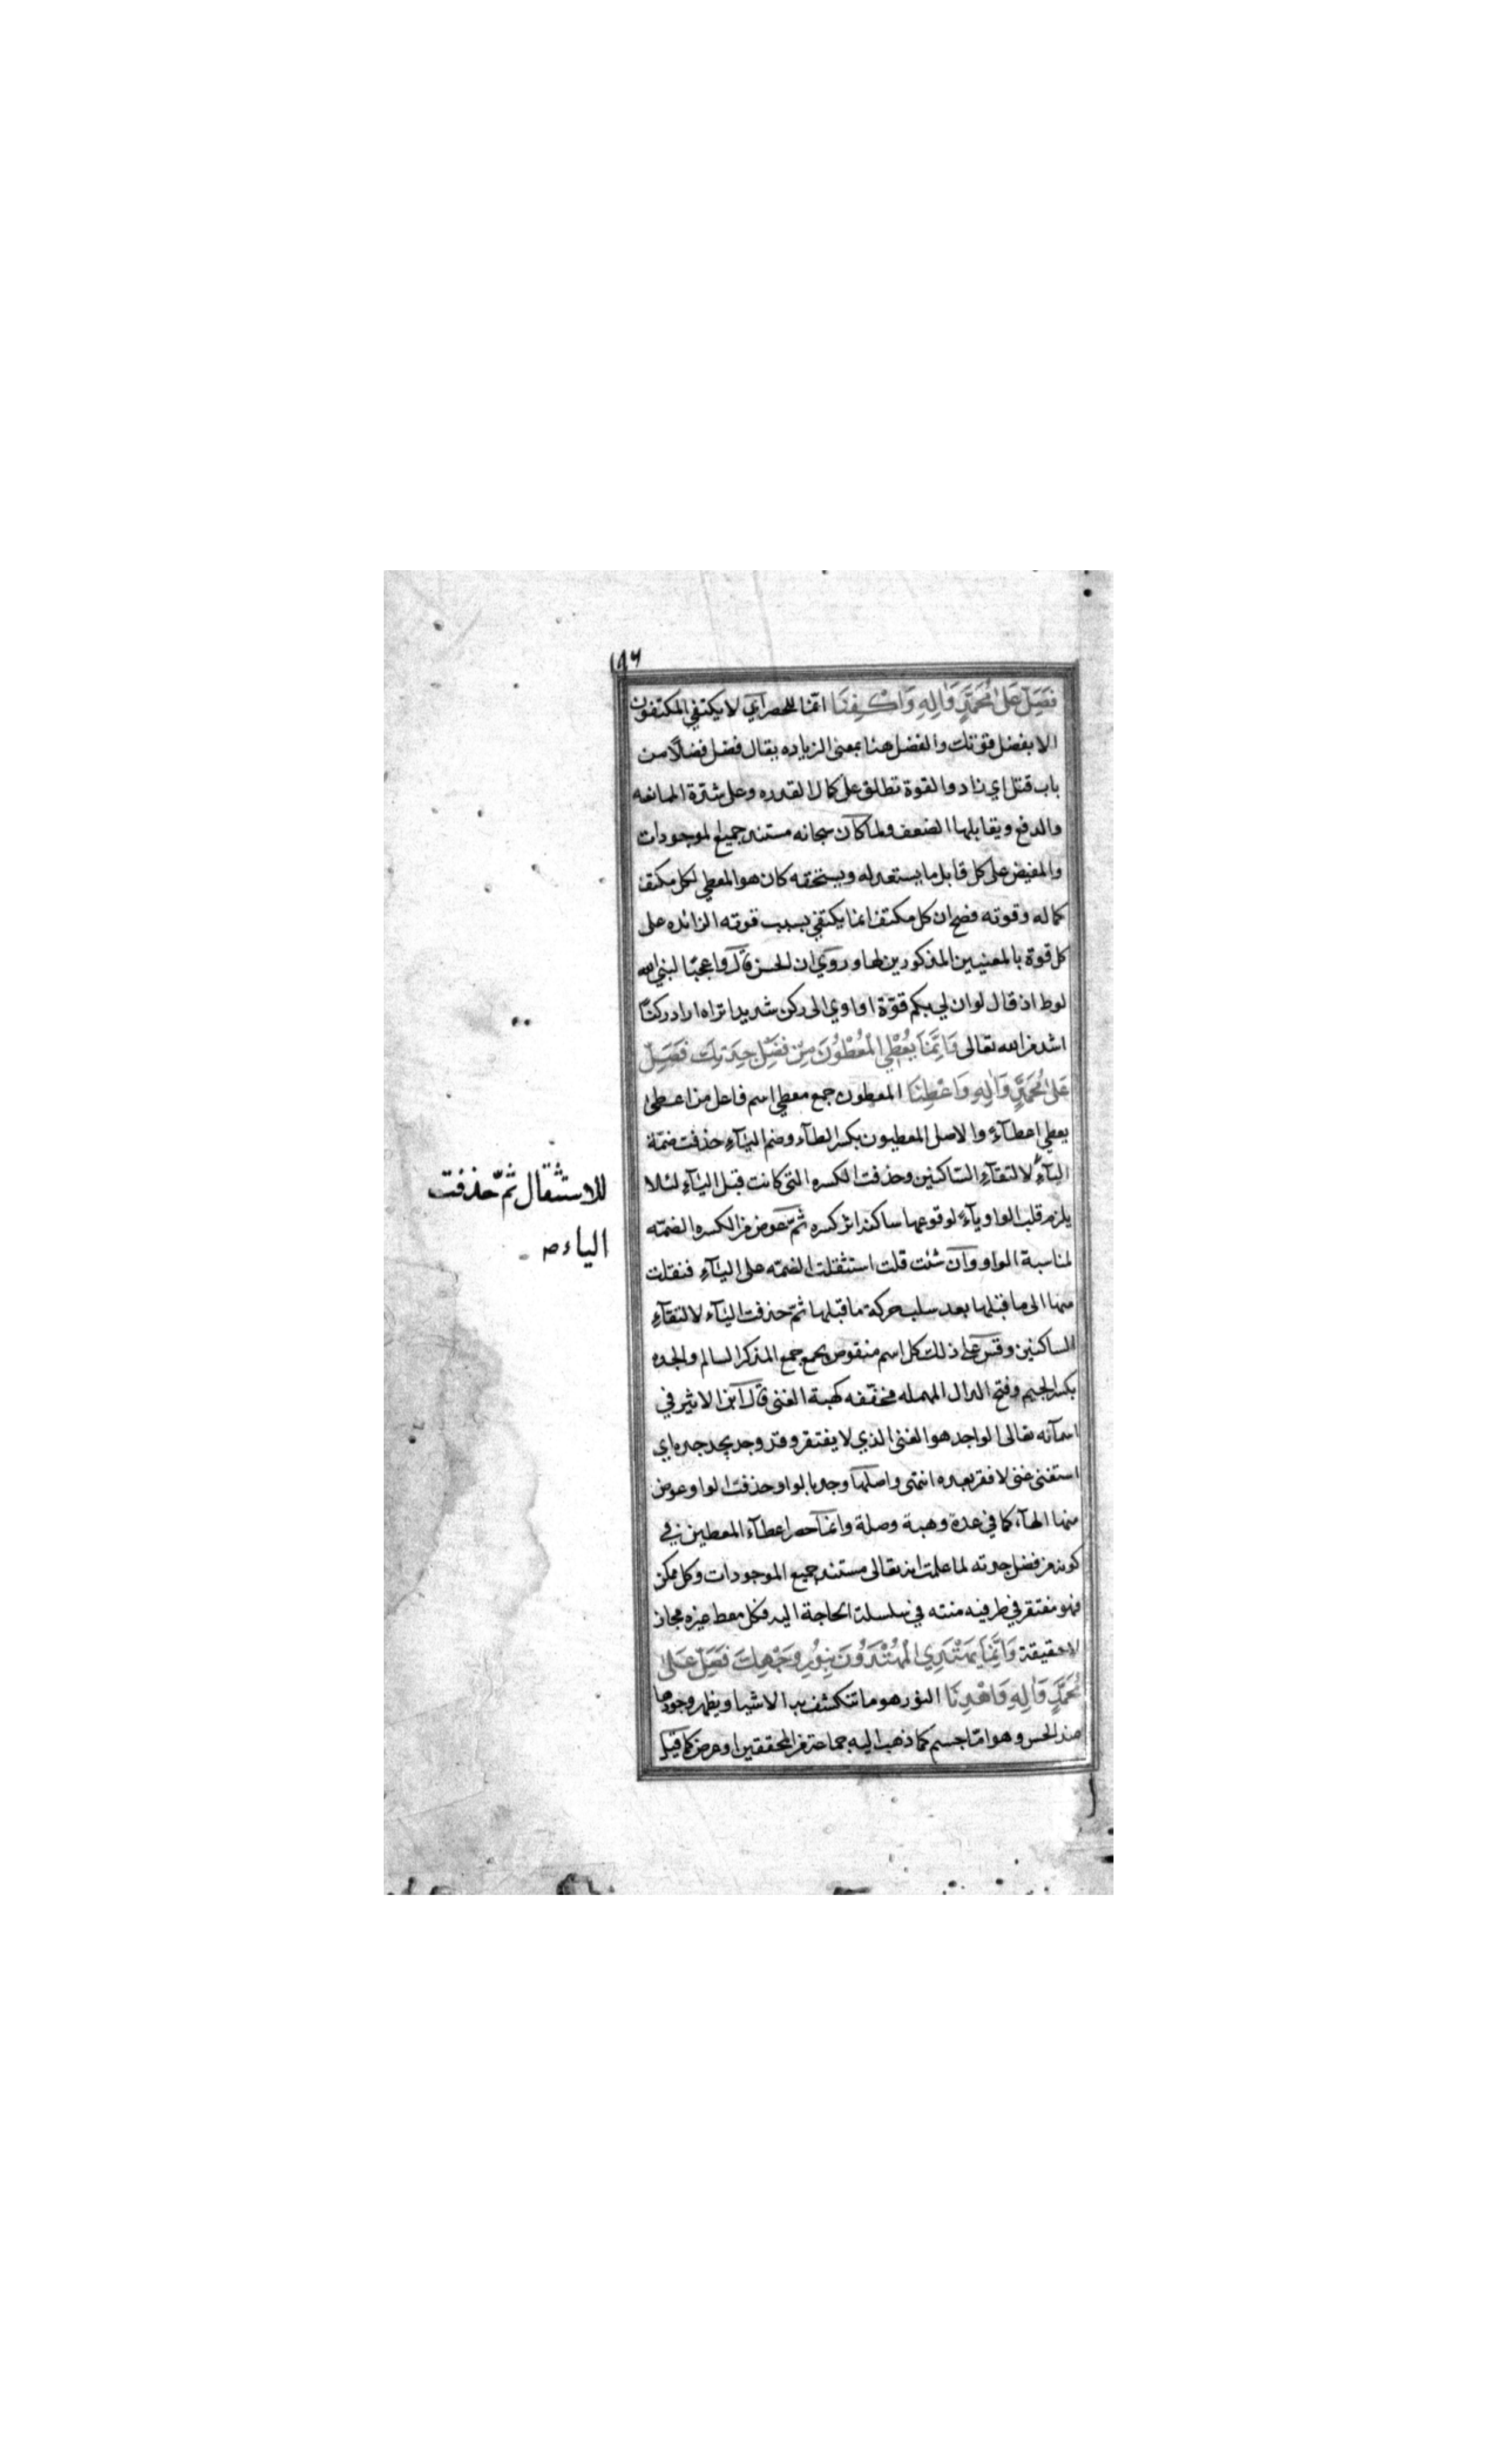 ١٨٦
فَصَلِّ عَلَى مُحَمَّدٍ وَاٰلِهِ وَاكْفِنَا انما للحصر اي لا يكتفي المكتفون
الا بفضل قوتك والفضل هنا بمعنى الزياده يقال فضل فضلاً من
باب قتل اي زاد والقوة تطلق على كمال القدره وعلى شدة الممانعه
والدفع ويقابلها الضعف ولما كان سبحانه مستند جميع الموجودات
والمفيض على كل قابل ما يستعد له ويستحقه كان هو المعطي لكل مكتف
كماله وقوته فصح ان كل مكتف انما يكتفي بسبب قوته الزائده على
كل قوة بالمعنيين المذكورين لها وروي ان الحسن قال واعجبًا لنبي الله
لوط اذ قال لو ان لي بكم قوّة او اوي الى ركن شديد اتراه اراد ركنًا
اشد من الله تعالى وَاِنَّمَا يُعْطِي الْمُعْطُوْنَ مِنْ فَضْلِ جِدَتِكَ فَصَلِّ
عَلٰى مُحَمَّدٍ وَاٰلِهِ وَاعْطِنَا المعطون جمع معطي اسم فاعل من اعطى
يعطي اعطآءً والاصل المعطيون بكسر الطآء وضم اليآءِ حذفت ضمّة
اليآءِ لالتقآءِ السّاكنين وحذفت الكسره التي كانت قبل اليآءِ لئلا
يلزم قلب الواو يآءً لوقوعها ساكنة اثر كسره ثمّ عوض من الكسره الضمّه
لمناسبة الواو وان شئت قلت استثقلت الضمّه على اليآءِ فنقلت
منها الى ما قبلها بعد سلب حركة ما قبلها ثمّ حذفت اليآء لالتقآءِ
الساكنين وقس على ذلك كل اسم منقوص يجمع جمع المذكر السالم والجده
بكسر الجيم وفتح الدال المهمله مخفّفه كهبة الغنى قال ابن الاثير في
اسمآئه تعالى الواجد هو الغني الذي لا يفتقر وقد وجد يجد جده اي
استغنى غنى لا فقر بعده انتهى واصلها وجد بالواو حذفت الواو وعوض
منها الهآء كما في عدة وهبة وصلة وانما حصر اعطآء المعطين في
كونه من فضل جدته لما علمت انه تعالى مستند جميع الموجودات وكل ممكن
فهو مفتقر في طرفيه منته في سلسلة الحاجة اليه فكل معط غيره مجاز
لا حقيقة وَاِنَّمَا يَهْتَدِي الْمُهْتَدُونَ بِنُورِ وَجْهِكَ فَصَلِّ عَلٰى
مُحَمَّدٍ وَاٰلِهِ وَاهْدِنَا النور هو ما تنكشف به الاشيا ويظهر وجودها
عند الحس وهو امّا جسم كما ذهب اليه جماعة من المحققين او عرض كما قيل
للاستثقال ثمّ حذفت
الياء صح